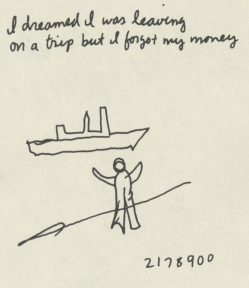 I dreamed I was leaving
on a trip but I forgot my money
2178900